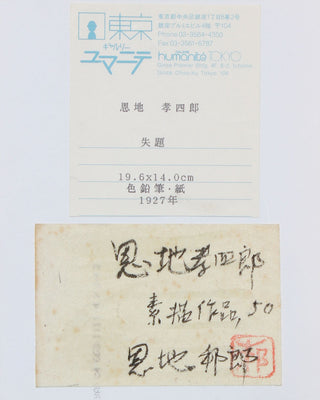 東京
ギャルリー
ユマニテ
東京都中央区銀座1丁目8番2号
銀座プルミエビル4階 〒104
Phone 03-3564-4350
Fax 03-3561-6787
humanité TOKYO
恩地 孝四郎
失題
19.6x14.0cm
色鉛筆・紙
1927年
恩地孝四郎
素描作品, 50
恩地邦郎
邦